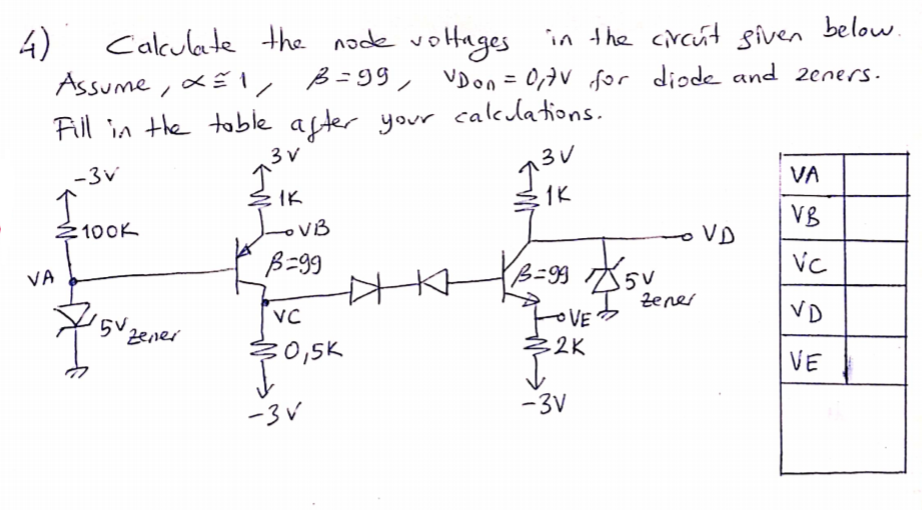 4) Calculate the node voltages in the circuit given below.
Assume, α≅1, β=99, VDon = 0,7V for diode and zeners.
Fill in the table after your calculations.
-3V
100K
VA
5V zener
3V
1K
VB
β=99
VC
0,5K
-3V
3V
1K
VD
β=99
5V
zener
VE
2K
-3V
VA
VB
VC
VD
VE